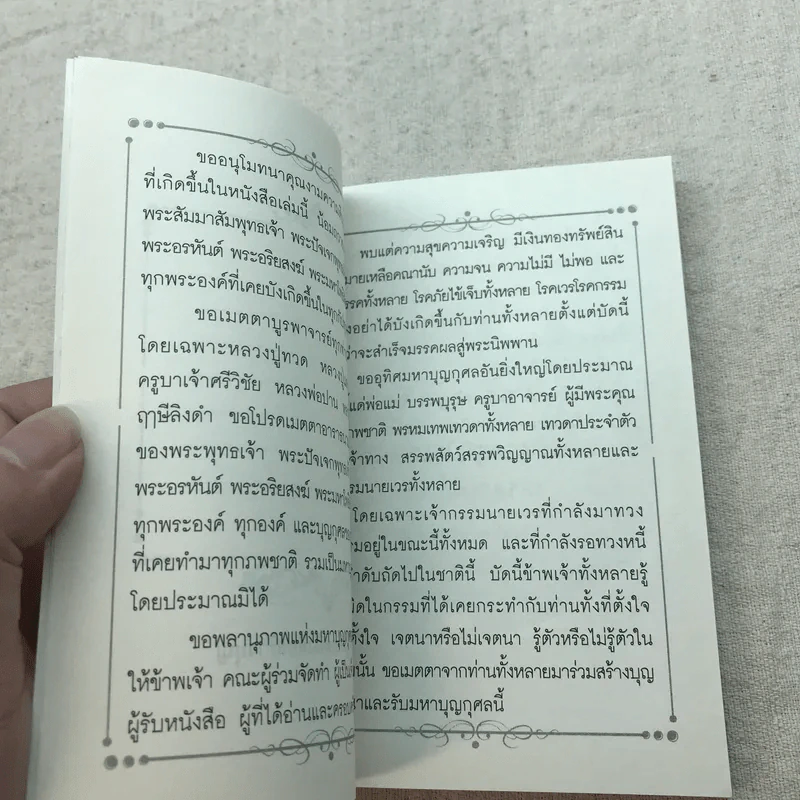 ขออนุโมทนาคุณงามความ
ที่เกิดขึ้นในหนังสือเล่มนี้ น้อม
พระสัมมาสัมพุทธเจ้า พระปัจเจกพุทธ
พระอรหันต์ พระอริยสงฆ์
ทุกพระองค์ที่เคยบังเกิดขึ้นใน
ขอเมตตาบูรพาจารย์
โดยเฉพาะหลวงปู่ทวด หลวงปู่
ครูบาเจ้าศรีวิชัย หลวงพ่อปาน
ฤๅษีลิงดำ ขอโปรดเมตตา
ของพระพุทธเจ้า พระปัจเจกพุทธ
พระอรหันต์ พระอริยสงฆ์
ทุกพระองค์ ทุกองค์ และบุญกุศล
ที่เคยทำมาทุกภพชาติ รวมเป็น
โดยประมาณมิได้
ขอพลานุภาพแห่งมหาบุญ
ให้ข้าพเจ้า คณะผู้ร่วมจัดทำ
ผู้รับหนังสือ ผู้ที่ได้อ่านและครอบ
พบแต่ความสุขความเจริญ มีเงินทองทรัพย์สิน
มายเหลือคณานับ ความจน ความไม่มี ไม่พอ และ
รรคทั้งหลาย โรคภัยไข้เจ็บทั้งหลาย โรคเวรโรคกรรม
งอย่าได้บังเกิดขึ้นกับท่านทั้งหลายตั้งแต่บัดนี้
ว่าจะสำเร็จมรรคผลสู่พระนิพพาน
ขออุทิศมหาบุญกุศลอันยิ่งใหญ่โดยประมาณ
แด่พ่อแม่ บรรพบุรุษ ครูบาอาจารย์ ผู้มีพระคุณ
ภพชาติ พรหมเทพเทวดาทั้งหลาย เทวดาประจำตัว
จ้าทาง สรรพสัตว์สรรพวิญญาณทั้งหลายและ
รรมนายเวรทั้งหลาย
โดยเฉพาะเจ้ากรรมนายเวรที่กำลังมาทวง
ามอยู่ในขณะนี้ทั้งหมด และที่กำลังรอทวงหนี้
ำดับถัดไปในชาตินี้ บัดนี้ข้าพเจ้าทั้งหลายรู้
ผิดในกรรมที่ได้เคยกระทำกับท่านทั้งที่ตั้งใจ
ตั้งใจ เจตนาหรือไม่เจตนา รู้ตัวหรือไม่รู้ตัวใน
นั้น ขอเมตตาจากท่านทั้งหลายมาร่วมสร้างบุญ
และรับมหาบุญกุศลนี้